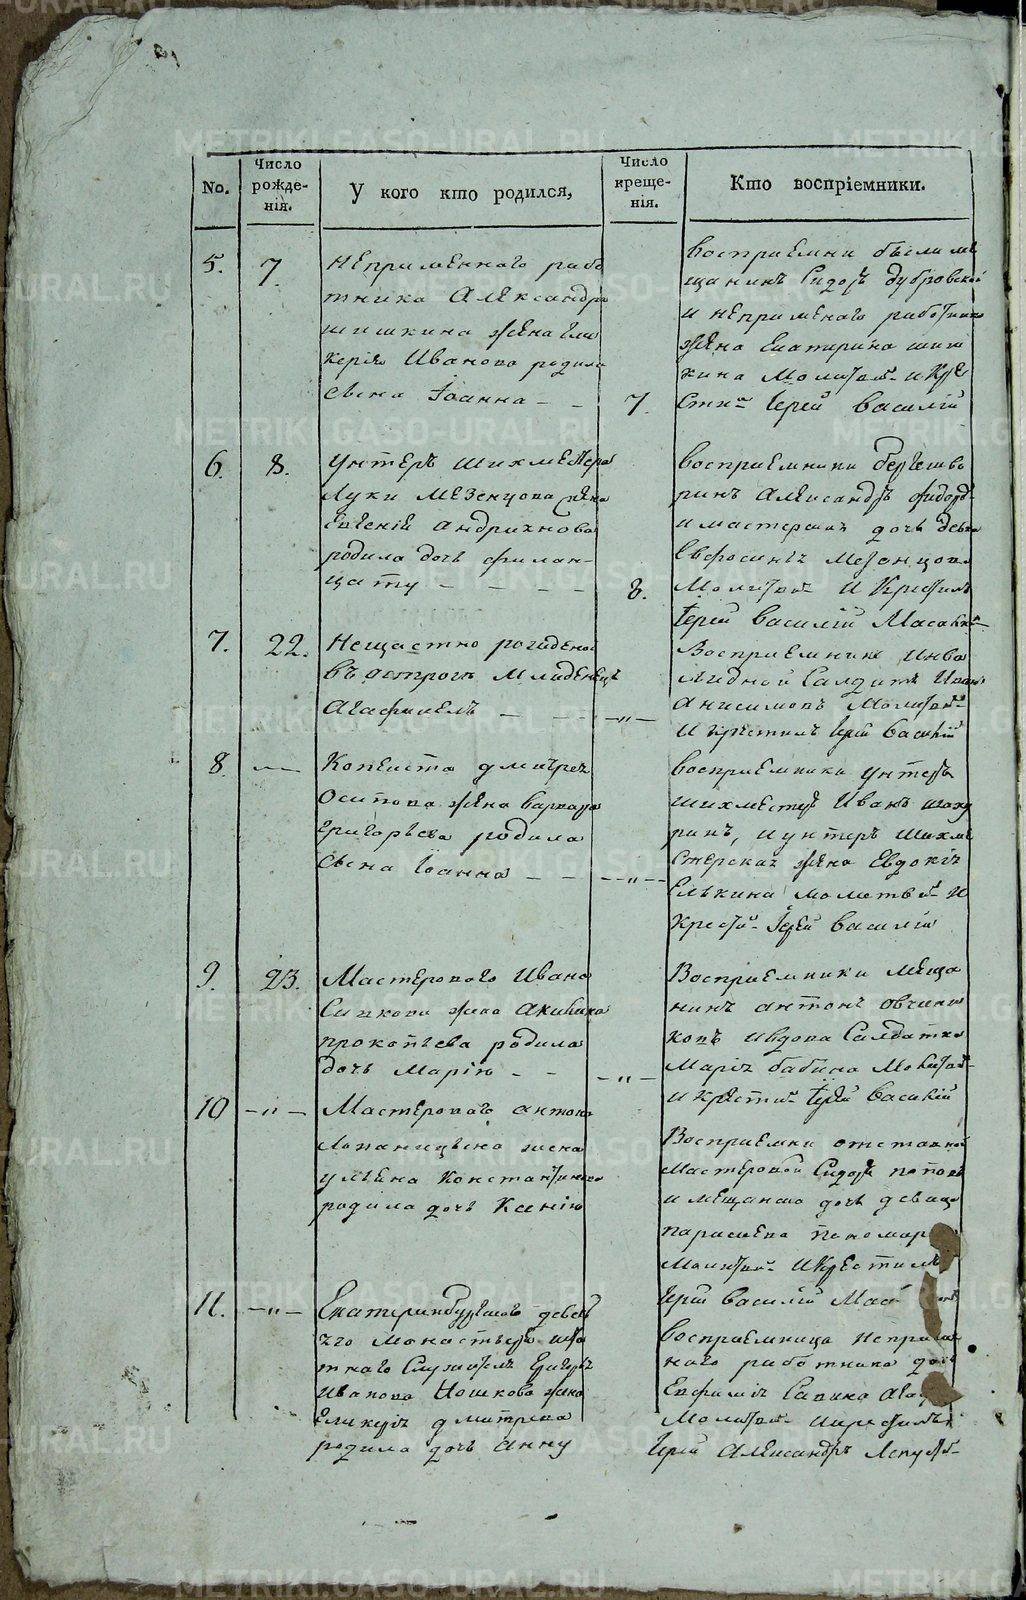 No.
Число рожде-нія.
У кого кто родился,
Число креще-нія.
Кто воспріемники.
5.
7.
непременного рабо
тника Александра
шишкина жена Гли
керия Иванова родила
сына Іоанна - -
7.
восприемни были ме
щанинъ Сидоръ дубровской
и непременаго работника
жена Екатерина шиш
кина Молитво и Кре
стил Іерей василій
6.
8.
Унтеръ шихмейстера
Луки Мезенцова жена
Евгенія андриянова
родила дочь филан-
цату - - - -
8.
восприемники
ринъ Александръ
и мастерская дочь девка
Евфосинья Мезенцова
Молитво И Крестилъ
Іерей василій
7.
22.
Нещастно рожденой
въ остроге Младенецъ
Агафангелъ - - -
-"-
Восприемники Инва
лидной Салдатъ Иванъ
анисимовъ Молитво
И крестилъ Іерей василій
8.
Копеиста дмитрея
Осипова жена варвара
григорьева родила
сына Іоанна - -
-"-
восприемники унтеръ
шихместеръ Иванъ
ринъ, и унтеръ шихме
стерская жена Евдокія
Елькина молитво И
Крести Іерей василій
9.
23.
Мастерового Ивана
жена Акилина
прокопьева родила
дочь Марію - -
-"-
Восприемники меща
нинъ антонъ овчини
ковъ ивдова Салдатка
Марія бабина Молитво
и крести Іерей василій
10
-"-
Мастерового антона
жена
ульяна Константинова
родила дочь Ксенію
Восприемни отставной
мастеровой Сидоръ поповъ
и мещанска дочь девица
парасковья
Молитво И Крестилъ
Іерей василій
11.
-"-
Екатеринбургского девич
чго монастыря шта
тнаго Служителя григорья
Иванова жена
Гликерія дмитрева
родила дочь анну
восприемница неприме
ннаго работника дочь
Евфимія Савина
Молитво Икрестилъ
Іерей Александръ